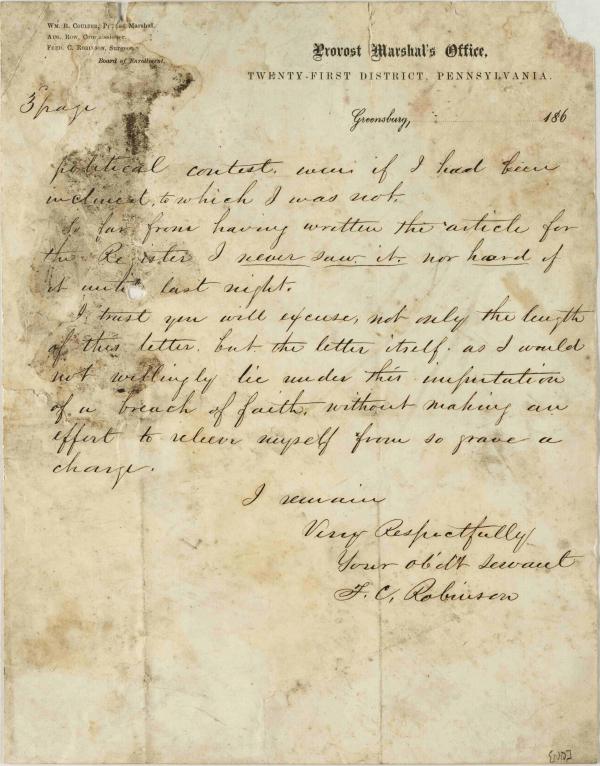 Wm. B. Coulter, Provost Marshal.
Aug. Row, Commissioner.
Fred. C. Robinson, Surgeon.
Board of Enrollment.
Provost Marshal's Office,
TWENTY-FIRST DISTRICT, PENNSYLVANIA.
3d page
Greensburg, 186
political contest, even if I had been
inclined, to which I was not.
So far from having written the article for
the Register I never saw it. nor heard of
it until last night.
I trust you will excuse, not only the length
of this letter. but the letter itself. as I would
not willingly lie under this imputation
of a breach of faith, without making an
effort to relieve myself from so grave a
charge.
I remain
Very Respectfully
Your obdt servant
F. C. Robinson